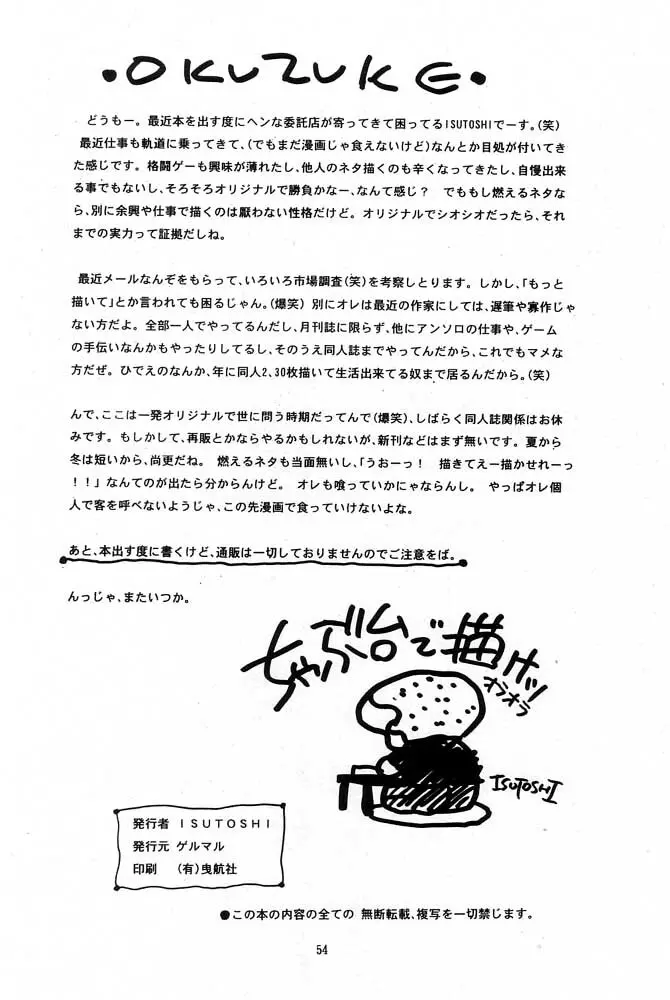 •OKUZUKE•
どうもー。最近本を出す度にヘンな委託店が寄ってきて困ってるISUTOSHIでーす。(笑)
最近仕事も軌道に乗ってきて、(でもまだ漫画じゃ食えないけど)なんとか目処が付いてき
た感じです。格闘ゲーも興味が薄れたし、他人のネタ描くのも辛くなってきたし、自慢出来
る事でもないし、そろそろオリジナルで勝負かなー、なんて感じ? でももし燃えるネタな
ら、別に余興や仕事で描くのは厭わない性格だけど。オリジナルでシオシオだったら、それ
までの実力って証拠だしね。
最近メールなんぞをもらって、いろいろ市場調査(笑)を考察しとります。しかし、「もっと
描いて」とか言われても困るじゃん。(爆笑) 別にオレは最近の作家にしては、遅筆や寡作じゃ
ない方だよ。全部一人でやってるんだし、月刊誌に限らず、他にアンソロの仕事や、ゲーム
の手伝いなんかもやったりしてるし、そのうえ同人誌までやってんだから、これでもマメな
方だぜ。ひでえのなんか、年に同人2,30枚描いて生活出来てる奴まで居るんだから。(笑)
んで、ここは一発オリジナルで世に問う時期だってんで(爆笑)、しばらく同人誌関係はお休
みです。もしかして、再販とかならやるかもしれないが、新刊などはまず無いです。夏から
冬は短いから、尚更だね。 燃えるネタも当面無いし、「うおーっ! 描きてえー描かせれーっ
!!」なんてのが出たら分からんけど。 オレも喰っていかにゃならんし。 やっぱオレ個
人で客を呼べないようじゃ、この先漫画で食っていけないよな。
あと、本出す度に書くけど、通販は一切しておりませんのでご注意をば。
んっじゃ、またいつか。
ちゃぶ台で描けッ!
オラオラ
ISUTOSHI
発行者 ISUTOSHI
発行元 ゲルマル
印刷 (有)曳航社
●この本の内容の全ての 無断転載、複写を一切禁じます。
54